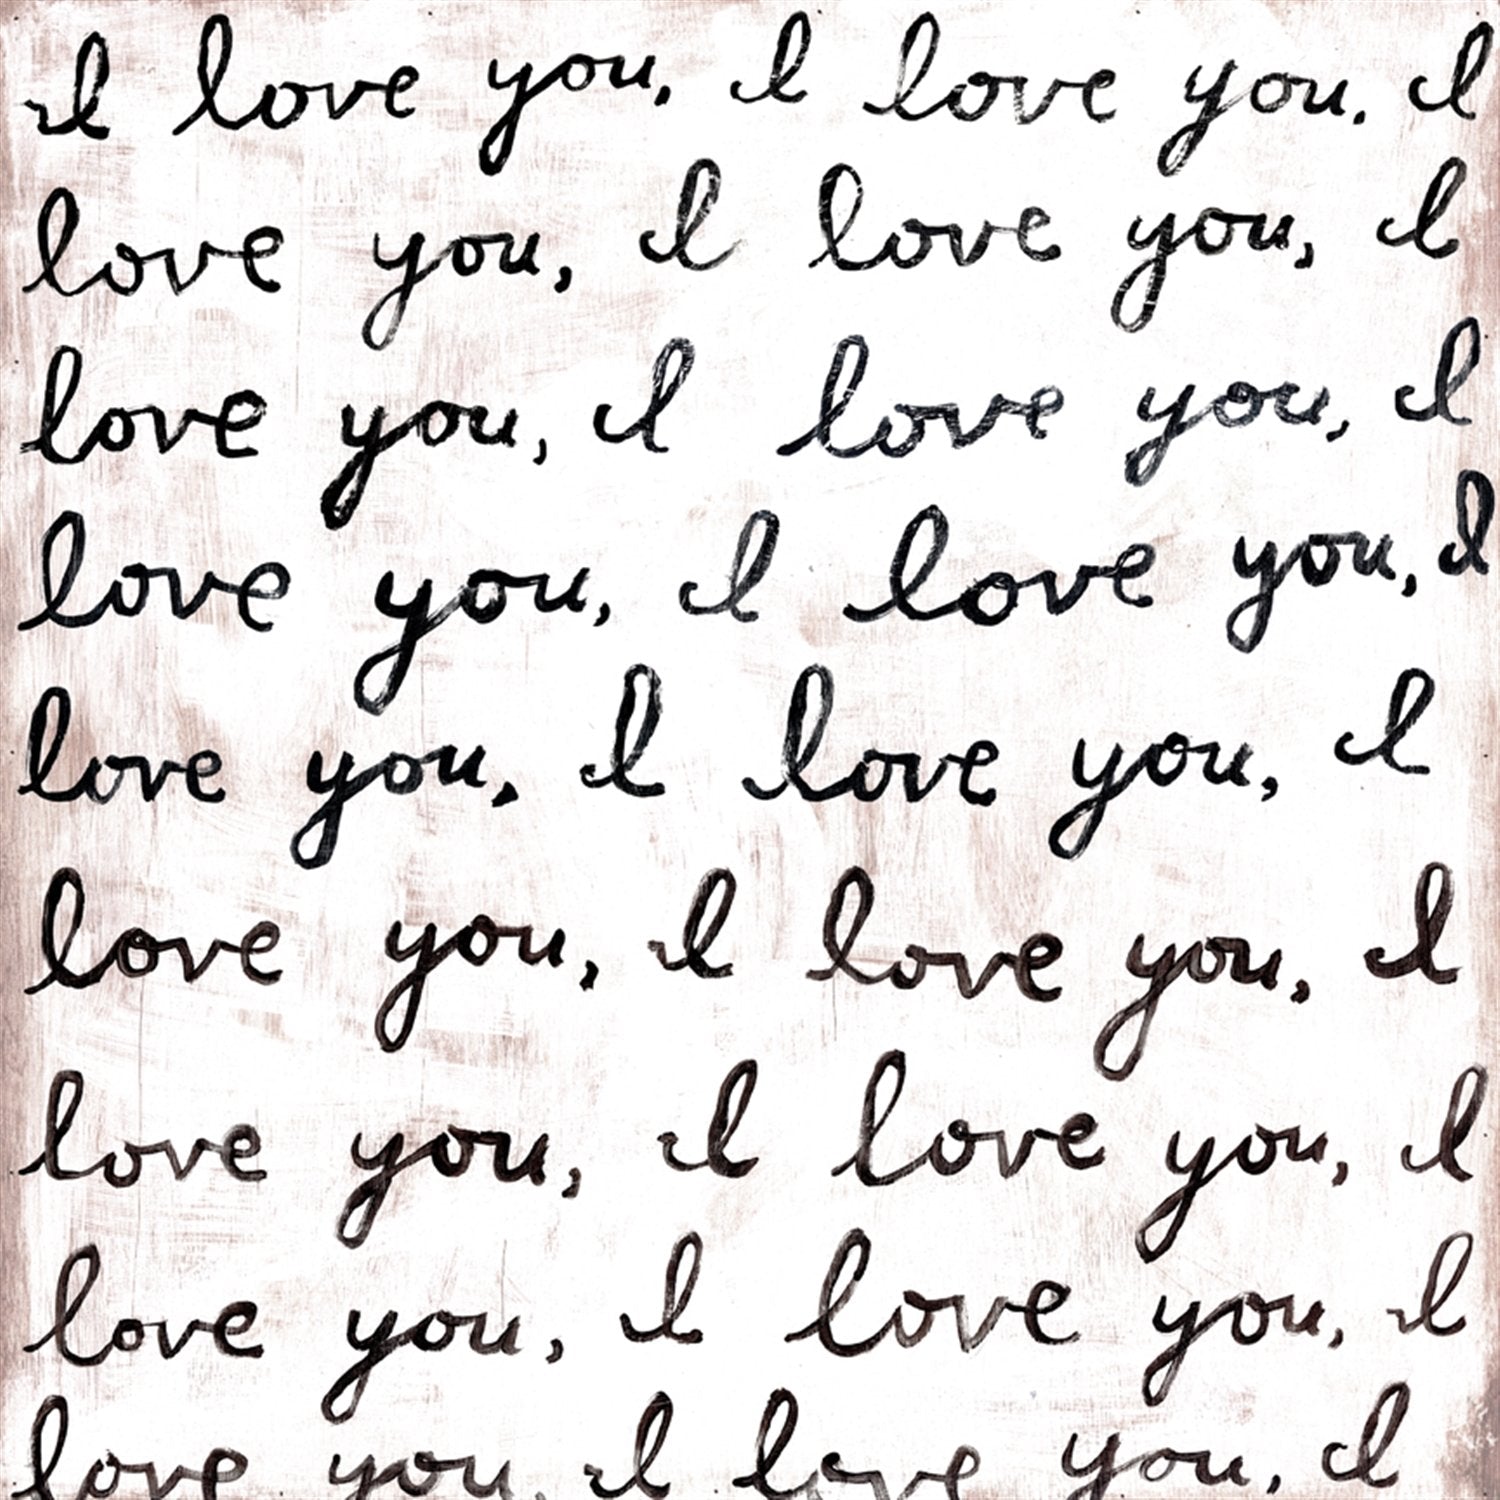 I love you, I love you. I
love you, I love you, I
love you, I love you, I
love you, I love you, I
love you, I love you, I
love you, I love you, I
love you, I love you, I
love you, I love you, I
love you, I love you, I